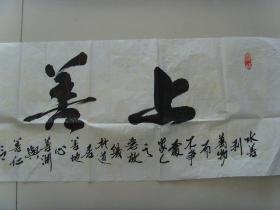 上善
水善
利
萬物
而
不争
處
之
惡故
幾
於道
居
善地
心
善渊
與
善仁